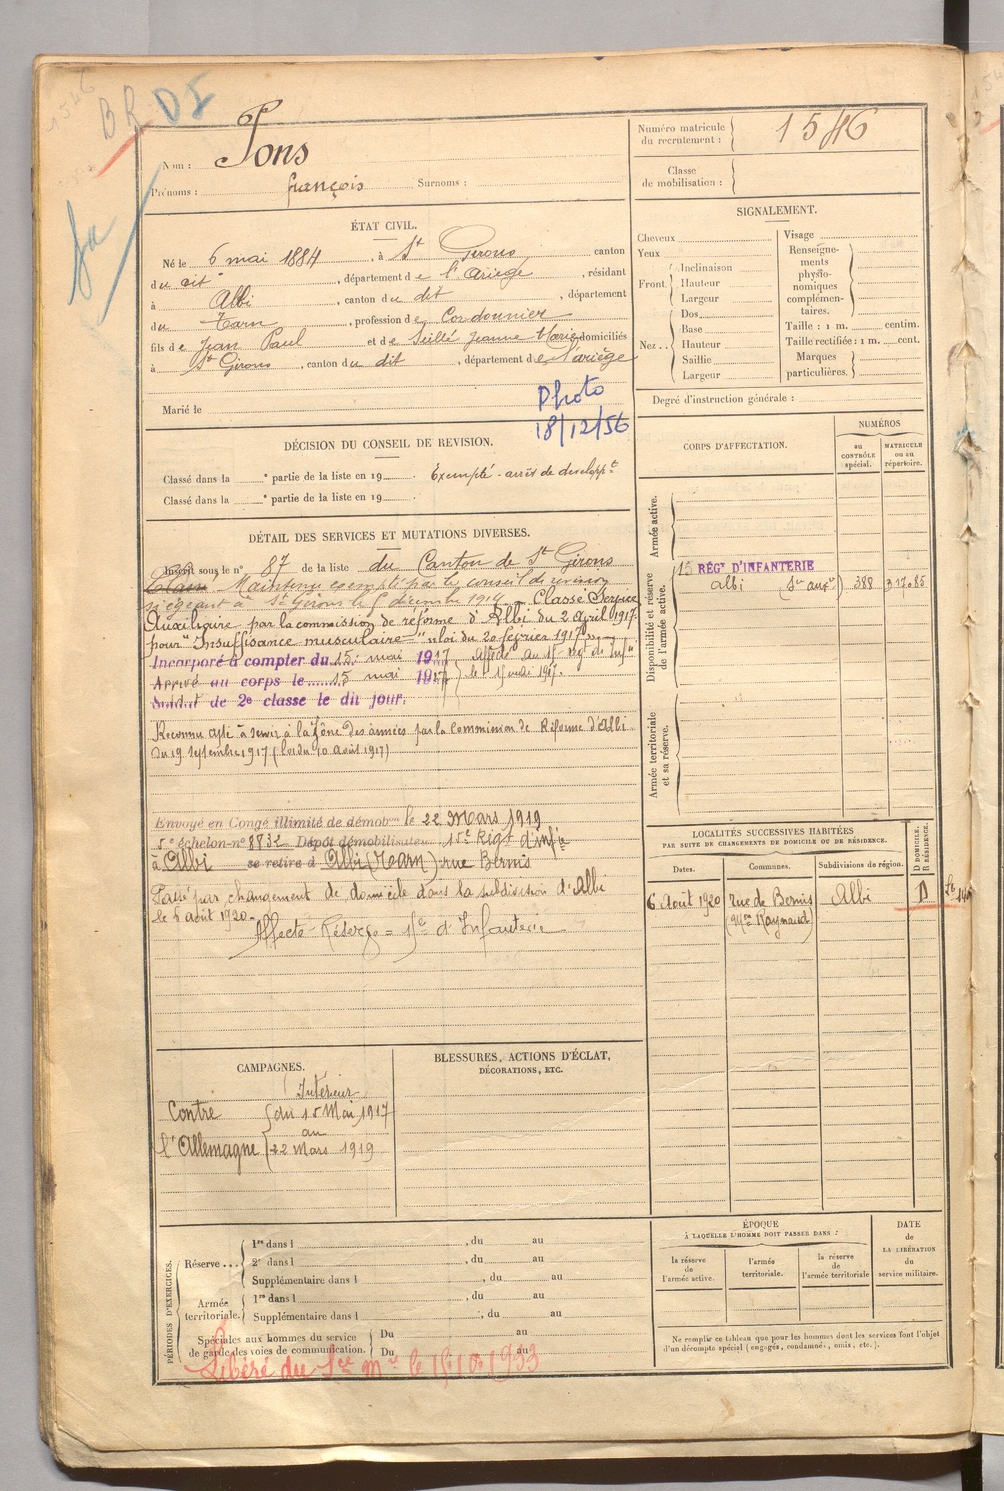 1546
BR DI
Nom : Pons
Prénoms : françois Surnoms :
Numéro matricule du recrutement : 1546
Classe de mobilisation :
ÉTAT CIVIL.
Né le 6 mai 1884, à St Girons canton
du dit, département de l'Ariège, résidant
à Albi, canton du dit, département
du Tarn, profession de Cordonnier
fils de Jean Paul et de Seillé Jeanne Marie domiciliés
à St Girons, canton du dit, département de l'Ariège
Marié le
Photo
18/12/56
SIGNALEMENT.
Cheveux
Yeux
Front Inclinaison
Hauteur
Largeur
Nez.. Dos
Base
Hauteur
Saillie
Largeur
Visage
Renseignements physionomiques complémentaires.
Taille : 1 m. centim.
Taille rectifiée : 1 m. cent.
Marques particulières.
Degré d'instruction générale :
DÉCISION DU CONSEIL DE REVISION.
Classé dans la e partie de la liste en 19 . Exempté - arrêt de developpt
Classé dans la e partie de la liste en 19 .
DÉTAIL DES SERVICES ET MUTATIONS DIVERSES.
Inscrit sous le n° 87 de la liste du Canton de St Girons
Maintenu exempté par le conseil de revision
siégeant à St Girons le 5 décembre 1914 - Classé Service
Auxiliaire par la commission de réforme d'Albi du 2 Avril 1917
pour "Insuffisance musculaire" loi du 20 février 1917
Incorporé à compter du 15 mai 1917 affecté au 15 Rég de Inf
Arrivé au corps le 15 mai 1917 le 15 mai 1917.
Soldat de 2e classe le dit jour.
Reconnu apte à servir à la zône des armées par la Commission de Réforme d'Albi
du 19 septembre 1917 (loi du 10 Août 1917)
Envoyé en Congé illimité de démob le 22 Mars 1919
5e échelon n° 8732 Dépôt démobilisateur 15e Rég d'infie
à Albi se retire à Albi (Tarn) rue Bernis
Passé par changement de domicile dans la subdivision d'Albi
le 6 août 1920
Affecté Réserve = 15e d'Infanterie
CORPS D'AFFECTATION.
NUMÉROS
au CONTRÔLE spécial.
MATRICULE ou au répertoire.
Armée active.
Disponibilité et réserve de l'armée active.
15 RÉGt D'INFANTERIE
Albi (Sce auxre) 388 317085
Armée territoriale et sa réserve.
LOCALITÉS SUCCESSIVES HABITÉES
PAR SUITE DE CHANGEMENTS DE DOMICILE OU DE RÉSIDENCE.
Dates. Communes. Subdivisions de région. D DOMICILE. R RÉSIDENCE.
6 Août 1920 rue de Bernis Albi D
(Mme Raynaud)
CAMPAGNES.
Intérieur
Contre du 15 Mai 1917
au
l'Allemagne 22 Mars 1919
BLESSURES, ACTIONS D'ÉCLAT,
DÉCORATIONS, ETC.
PÉRIODES D'EXERCICES.
Réserve ... 1re dans l , du au
2e dans l , du au
Supplémentaire dans l , du au
Armée territoriale. 1re dans l , du au
Supplémentaire dans l , du au
Spéciales aux hommes du service de garde des voies de communication. Du au
Du au
Libéré du Sce Mre le 15/10/1933
ÉPOQUE
À LAQUELLE L'HOMME DOIT PASSER DANS :
la réserve de l'armée active.
l'armée territoriale.
la réserve de l'armée territoriale
DATE de LA LIBÉRATION du service militaire.
Ne remplir ce tableau que pour les hommes dont les services font l'objet
d'un décompte spécial (engagés, condamnés, omis, etc.).